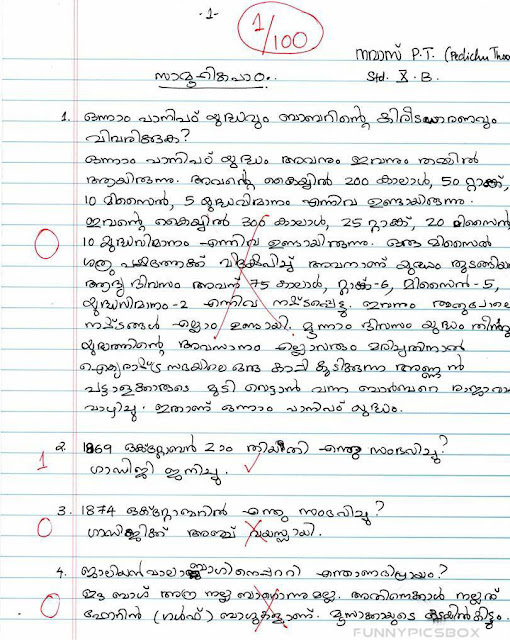 -1-
1/100
നവാസ് P.T. (Pedichu Thoo
Std. X. B.
സാമൂഹികപാഠം.
1. ഒന്നാം പാനിപഠ് യുദ്ധവും ബാബറിന്റെ കിരീടധാരണവും
വിവരിക്കുക?
ഒന്നാം പാനിപഠ് യുദ്ധം അവനും ഇവനും തമ്മിൽ
ആയിരുന്നു. അവന്റെ കൈയ്യിൽ 200 കാലാൾ, 50 റ്റാങ്ക്,
10 മിസൈൻ, 5 യുദ്ധവിമാനം എന്നിവ ഉണ്ടായിരുന്നു.
ഇവന്റെ കൈയ്യിൽ 300 കാലാൾ, 25 റ്റാങ്ക്, 20 മിസൈൻ
0 10 യുദ്ധവിമാനം എന്നിവ ഉണ്ടായിരുന്നു. ഒരു മിസൈൽ
ശത്രു പക്ഷത്തേക്ക് വിക്ഷേപിച്ച് അവനാണ് യുദ്ധം തുടങ്ങിയ
ആദ്യ ദിവസം അവന് 75 കാലാൾ, റ്റാങ്ക്-6, മിസൈൻ-5,
യുദ്ധവിമാനം-2 എന്നിവ നഷ്ടപ്പെട്ടു. ഇവനും അതുപോലെ
നഷ്ടങ്ങൾ എല്ലാം ഉണ്ടായി. മൂന്നാം ദിവസം യുദ്ധം തീർന്നു
യുദ്ധത്തിന്റെ അവസാനം എല്ലാവരും മരിച്ചതിനാൽ
ഐക്യരാഷ്ട്ര സഭയിലെ ഒരു കാപ്പി കുടിക്കുന്ന അണ്ണൻ
പട്ടാളക്കാരുടെ മുടി വെട്ടാൻ വന്ന ബാർബറെ രാജാവാ
വാഴിച്ചു. ഇതാണ് ഒന്നാം പാനിപഠ് യുദ്ധം.
2. 1869 ഒക്ടോബർ 2ാം തിയതി എന്തു സംഭവിച്ചു?
1 ഗാന്ധിജി ജനിച്ചു.
3. 1874 ഒക്ടോബറിൻ എന്തു സംഭവിച്ചു?
0 ഗാന്ധിജിക്ക് അഞ്ച് വയസ്സായി.
4. ജാലിയൻ വാലാബാഗിനെപ്പറ്റി എന്താണഭിപ്രായം?
ഈ ബാഗ് അത്ര നല്ല ബാഗൊന്നുമല്ല. അതിനെക്കാൾ നല്ലത്
0 ഫോറിൻ (ഗൾഫ്) ബാഗുകളാണ്. മൂസാക്കായുടെ കടയിൻകിട്ടും.
FUNNYPICSBOX